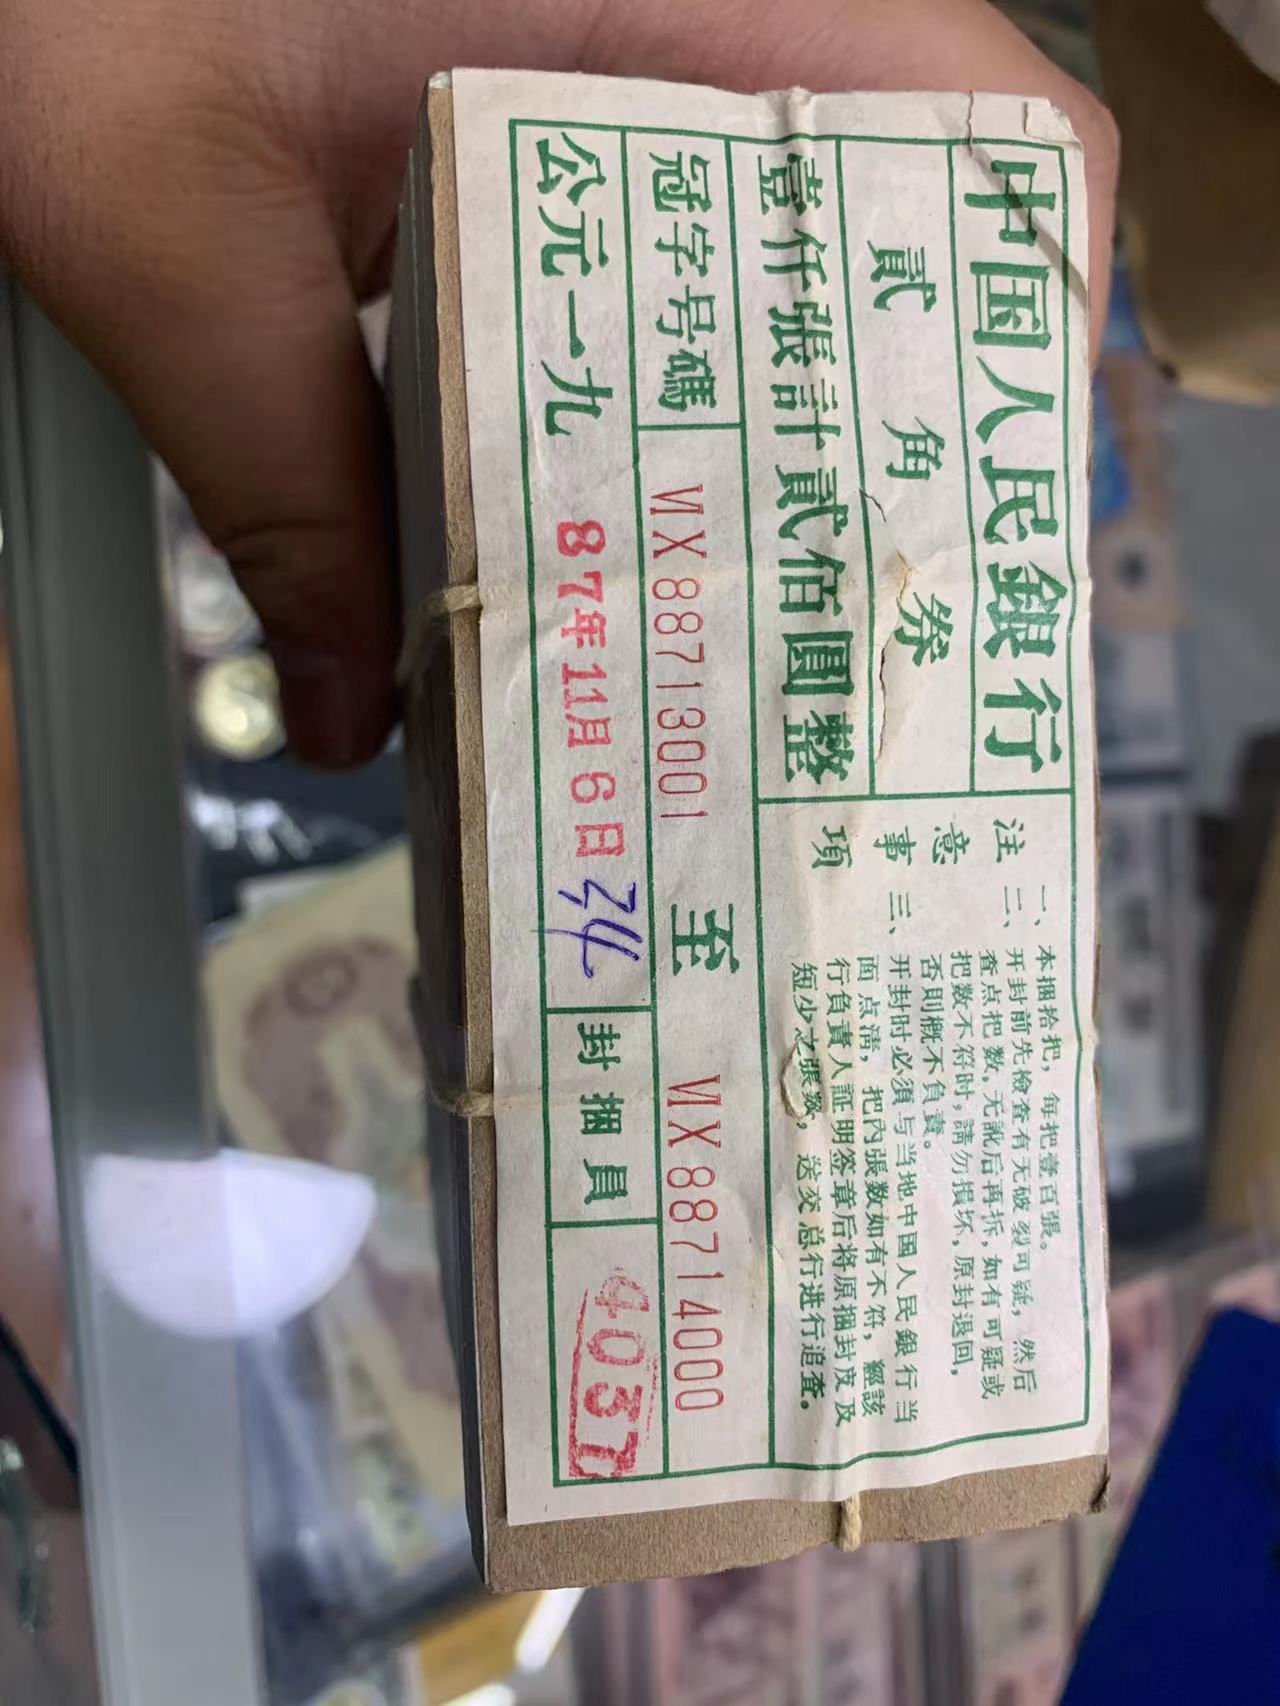 中国人民銀行
貳角券
壹仟張計貳佰圓整
注意事項
一、本捆拾把，每把壹百張。
二、开封前先檢查有无破裂可疑，然后
查点把数，无訛后再拆，如有可疑或
把数不符时，請勿損坏，原封退回，
否則概不負責。
三、开封时必須与当地中国人民銀行当
面点清，把內張数如有不符，經該
行負責人証明签章后将原捆封皮及
短少之張数，送交总行进行追查。
冠字号碼
ⅥⅨ88713001 至 ⅥⅨ88714000
公元一九 87年11月6日 24 封捆員 4037